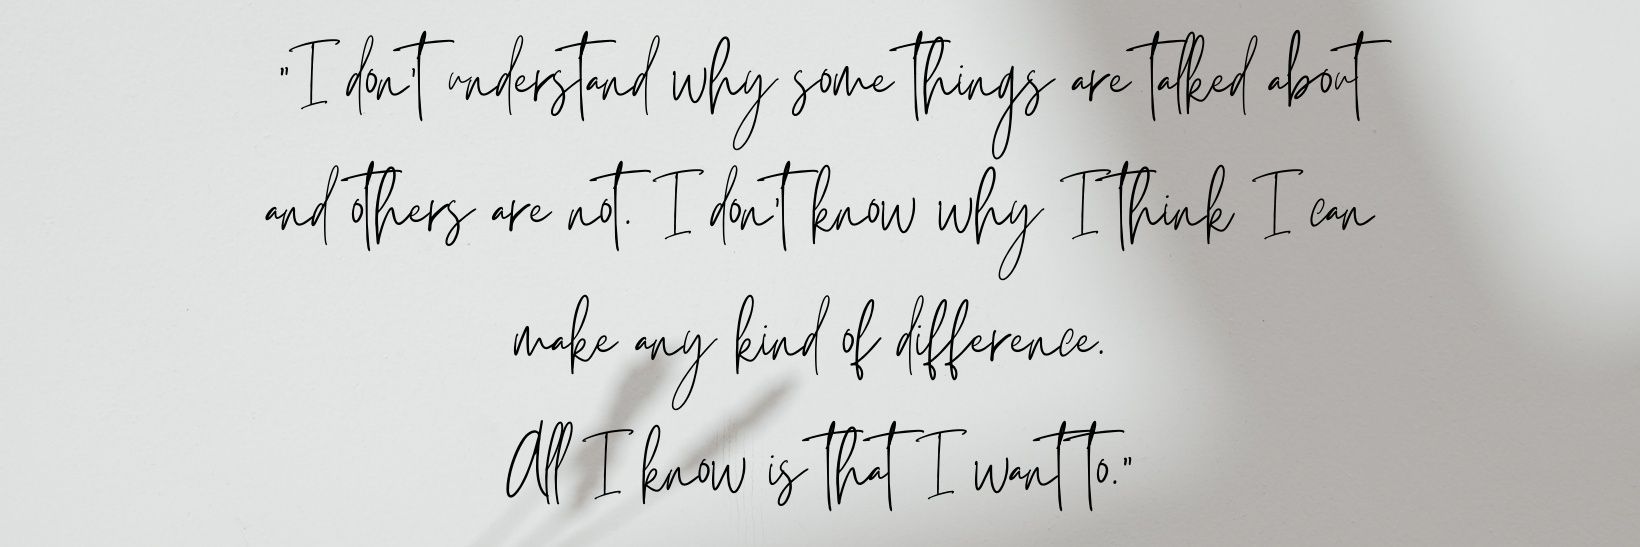 "I don't understand why some things are talked about
and others are not. I don't know why I think I can
make any kind of difference.
All I know is that I want to."